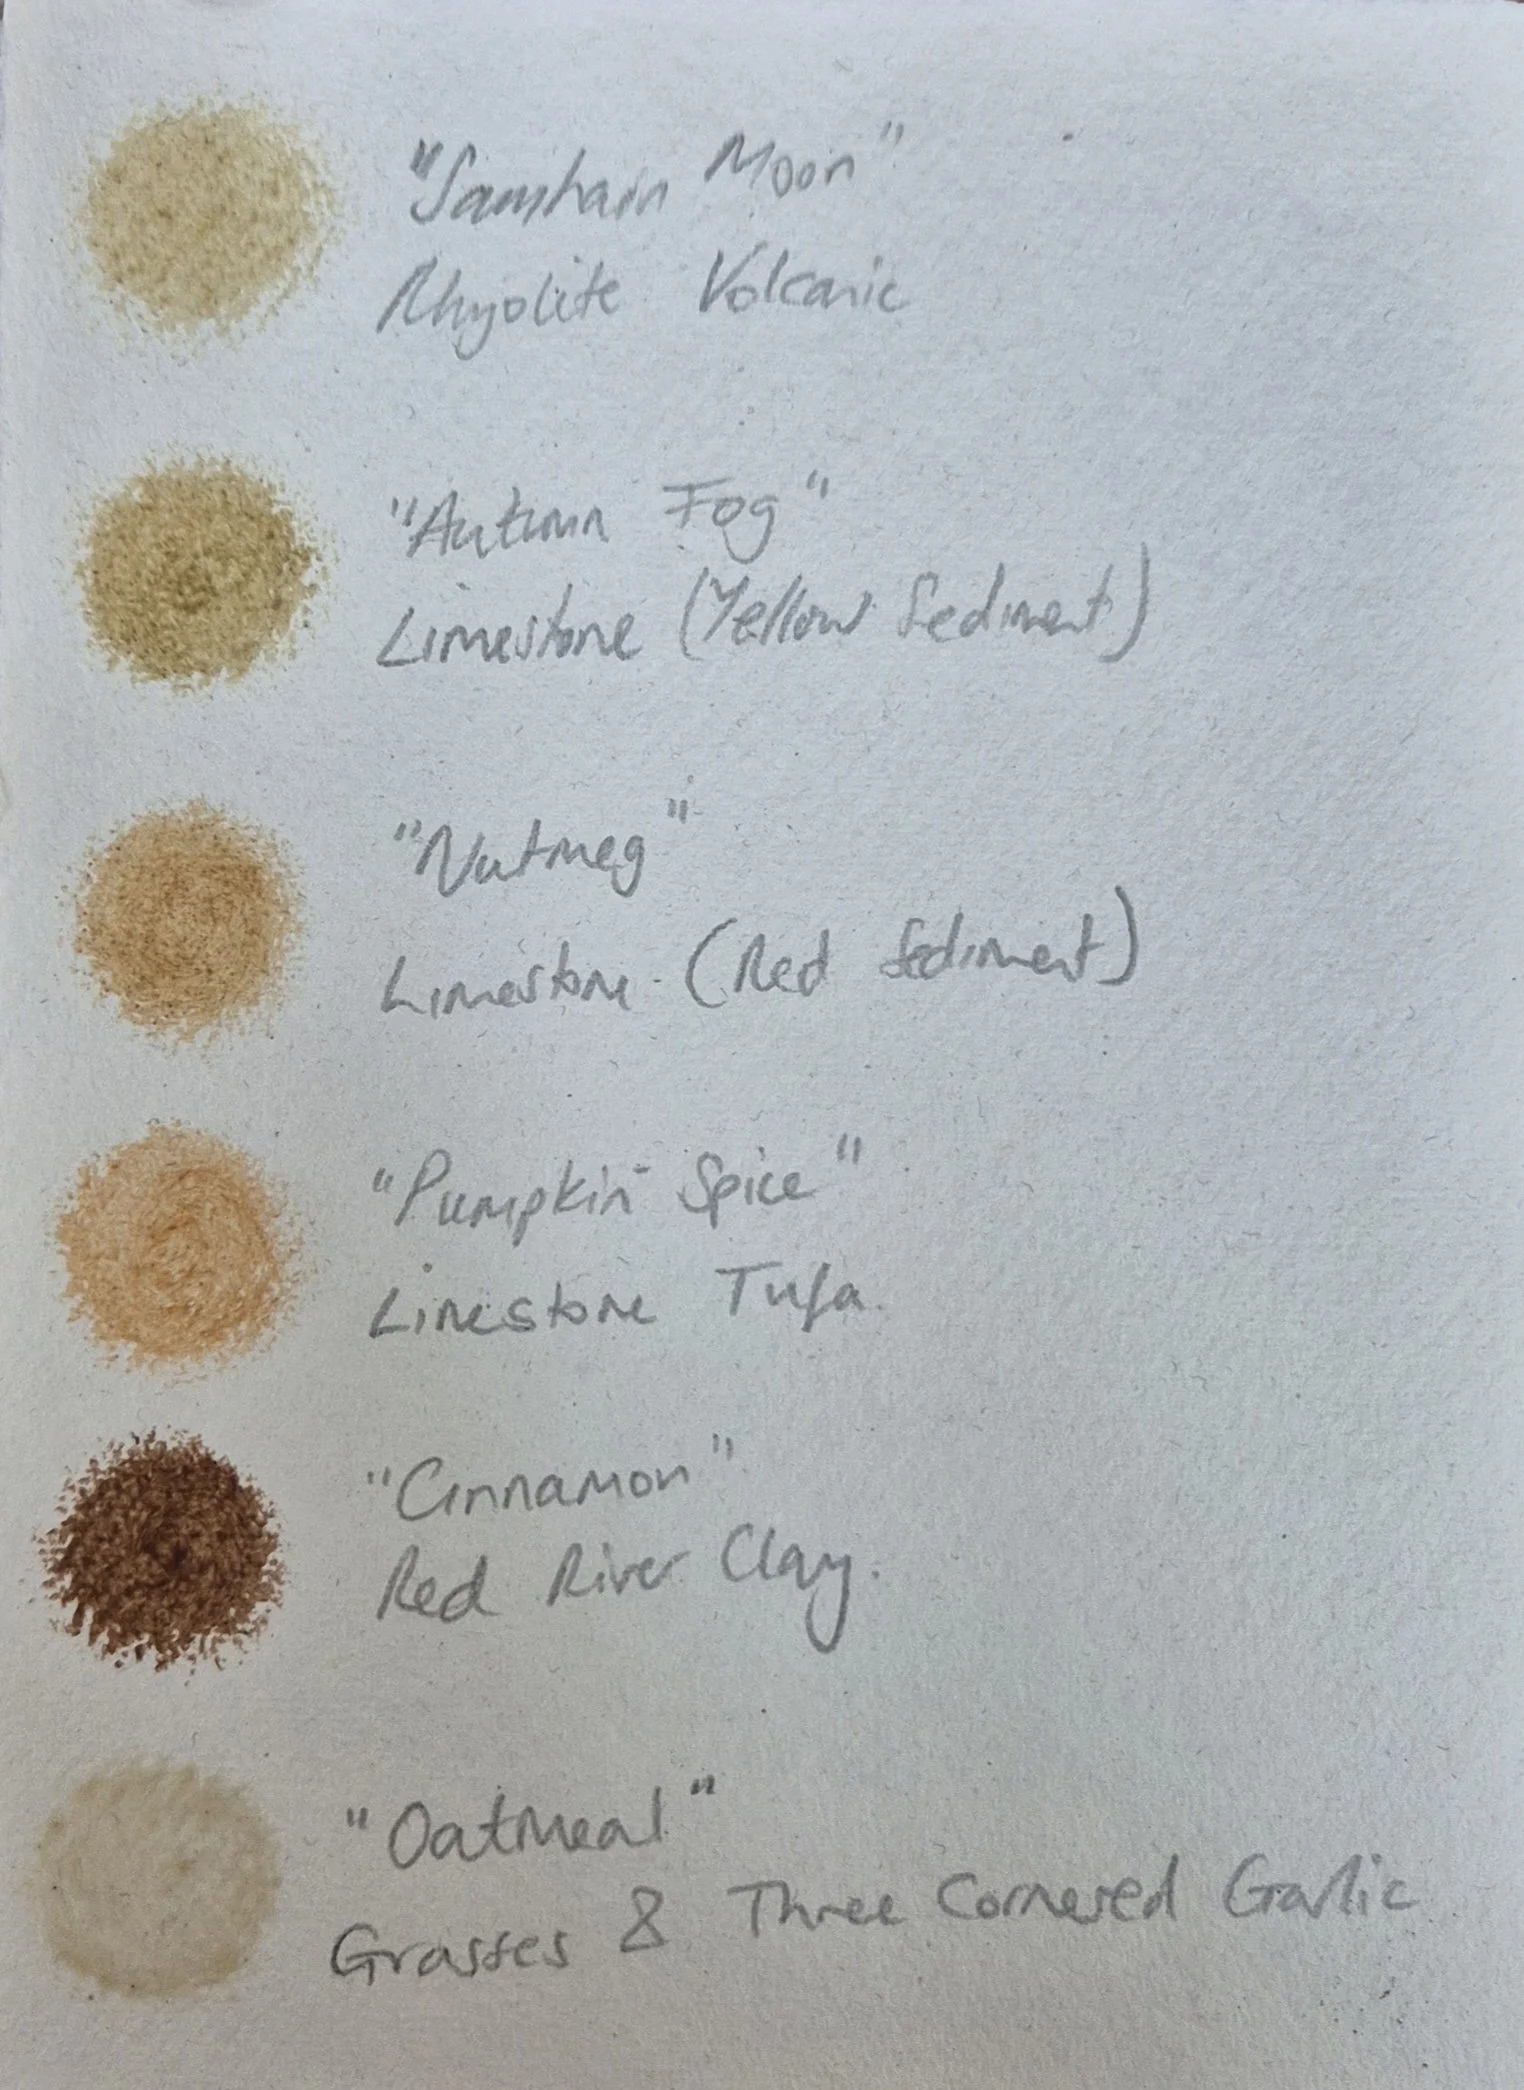 "Samhain Moon"
Rhyolite Volcanic
"Autumn Fog"
Limestone (Yellow Sediment)
"Nutmeg"
Limestone (Red Sediment)
"Pumpkin Spice"
Limestone Tufa.
"Cinnamon"
Red River Clay.
"Oatmeal"
Grasses & Three Cornered Garlic